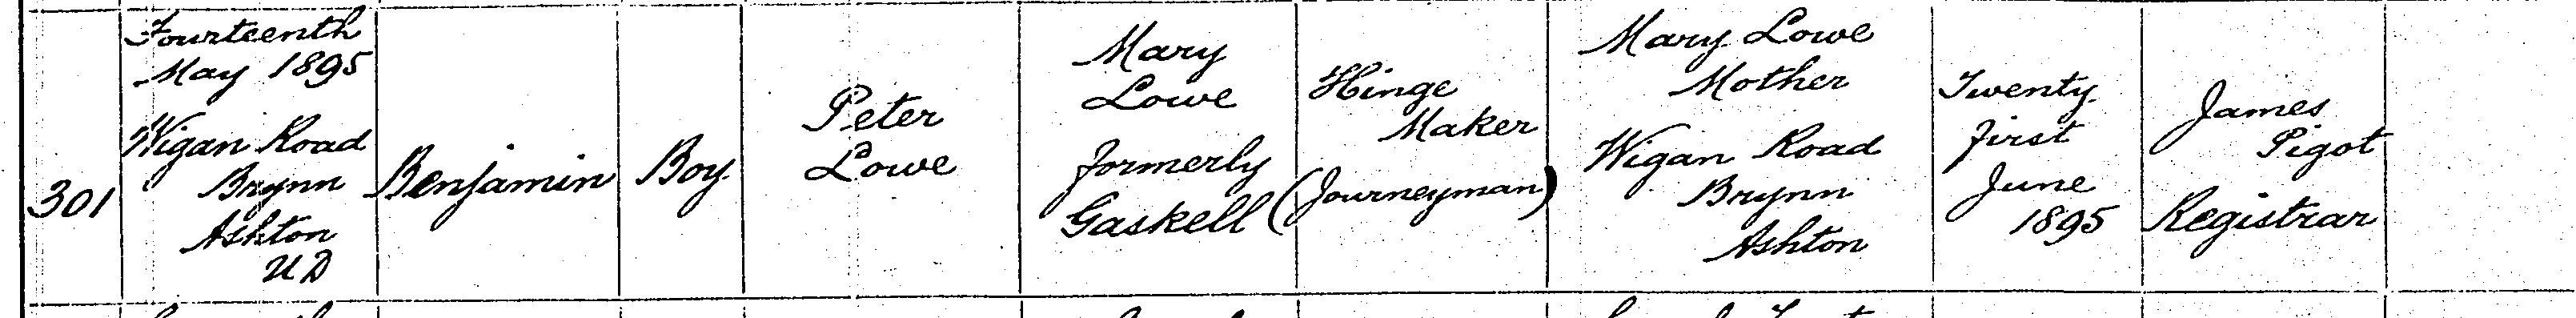 301
Fourteenth
May 1895
Wigan Road
Brynn
Ashton
UD
Benjamin
Boy
Peter
Lowe
Mary
Lowe
formerly
Gaskell
Hinge
Maker
(Journeyman)
Mary Lowe
Mother
Wigan Road
Brynn
Ashton
Twenty
first
June
1895
James
Pigot
Registrar